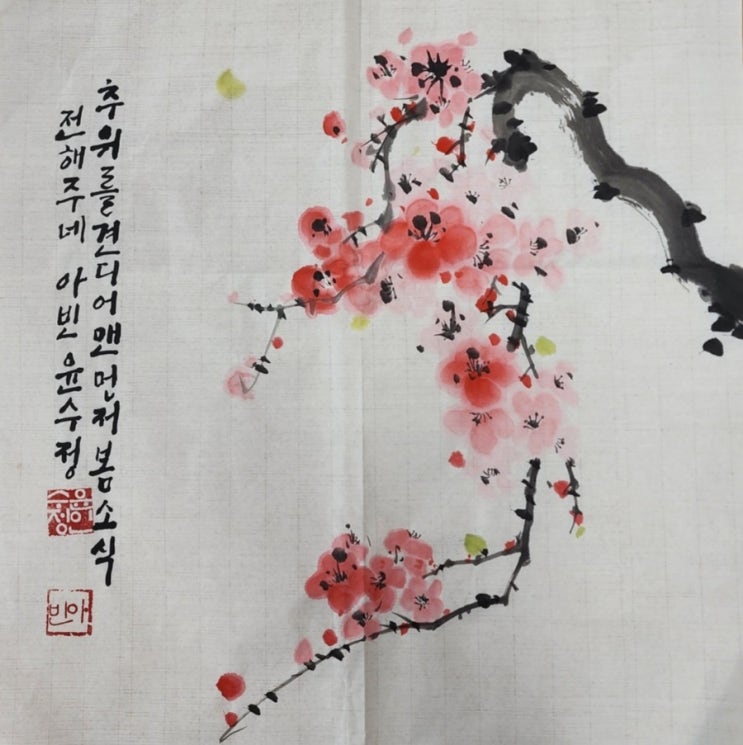 추위를견디어맨먼저봄소식
전해주네 아빈 윤수정
윤수정
아빈